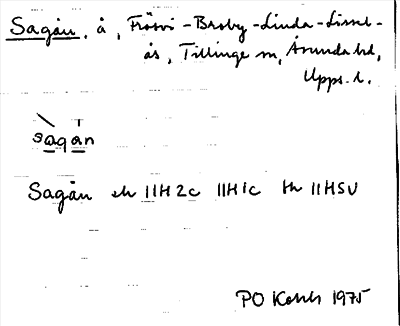 Sagån, å, Frösvi-Broby-Linda-Lissel-
ås, Tillinge sn, Åsunda hd,
Upps. l.
sagån
Sagån ek 11H2c 11H1c tk 11HSV
PO 1975